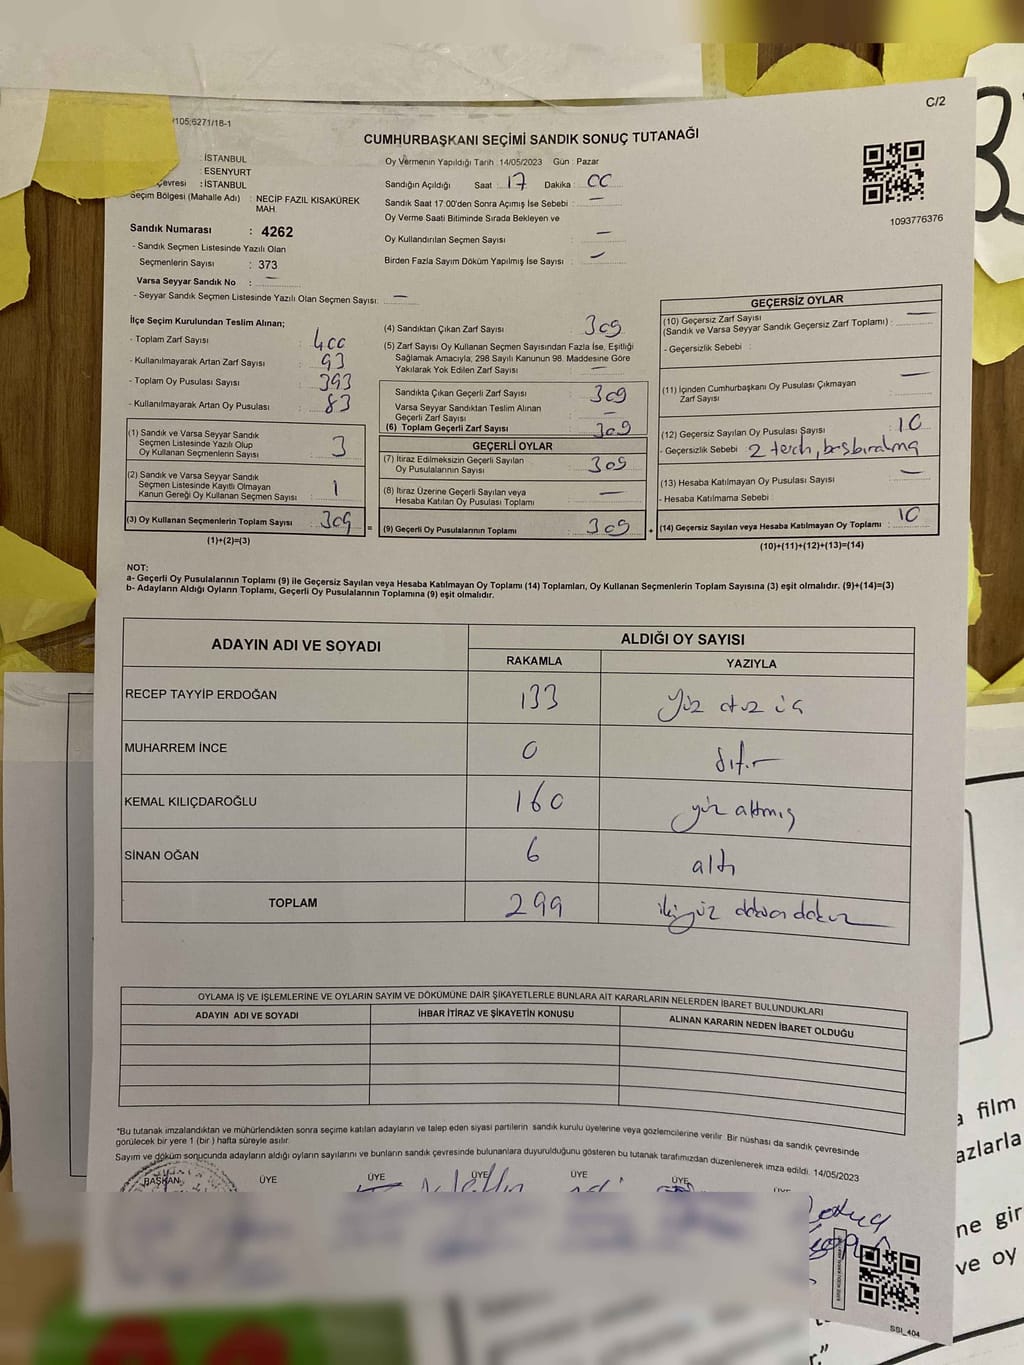 C/2
/105.6271/18-1
CUMHURBAŞKANI SEÇİMİ SANDIK SONUÇ TUTANAĞI
: İSTANBUL
: ESENYURT
çevresi : İSTANBUL
Seçim Bölgesi (Mahalle Adı) : NECİP FAZIL KISAKÜREK
MAH.
Sandık Numarası : 4262
- Sandık Seçmen Listesinde Yazılı Olan
Seçmenlerin Sayısı : 373
Varsa Seyyar Sandık No : —
- Seyyar Sandık Seçmen Listesinde Yazılı Olan Seçmen Sayısı: —
Oy Vermenin Yapıldığı Tarih : 14/05/2023 Gün : Pazar
Sandığın Açıldığı Saat : 17 Dakika : 00
Sandık Saat 17:00'den Sonra Açımış İse Sebebi : —
Oy Verme Saati Bitiminde Sırada Bekleyen ve
Oy Kullandırılan Seçmen Sayısı : —
Birden Fazla Sayım Döküm Yapılmış İse Sayısı : —
1093776376
İlçe Seçim Kurulundan Teslim Alınan;
- Toplam Zarf Sayısı : 400
- Kullanılmayarak Artan Zarf Sayısı : 93
- Toplam Oy Pusulası Sayısı : 393
- Kullanılmayarak Artan Oy Pusulası : 83
(1) Sandık ve Varsa Seyyar Sandık
Seçmen Listesinde Yazılı Olup
Oy Kullanan Seçmenlerin Sayısı : 3
(2) Sandık ve Varsa Seyyar Sandık
Seçmen Listesinde Kayıtlı Olmayan
Kanun Gereği Oy Kullanan Seçmen Sayısı : 1
(3) Oy Kullanan Seçmenlerin Toplam Sayısı : 309
(1)+(2)=(3)
(4) Sandıktan Çıkan Zarf Sayısı : 309
(5) Zarf Sayısı Oy Kullanan Seçmen Sayısından Fazla İse, Eşitliği
Sağlamak Amacıyla; 298 Sayılı Kanunun 98. Maddesine Göre
Yakılarak Yok Edilen Zarf Sayısı : —
Sandıkta Çıkan Geçerli Zarf Sayısı : 309
Varsa Seyyar Sandıktan Teslim Alınan
Geçerli Zarf Sayısı : —
(6) Toplam Geçerli Zarf Sayısı : 309
GEÇERLİ OYLAR
(7) İtiraz Edilmeksizin Geçerli Sayılan
Oy Pusulalarının Sayısı : 309
(8) İtiraz Üzerine Geçerli Sayılan veya
Hesaba Katılan Oy Pusulası Toplamı : —
= (9) Geçerli Oy Pusulalarının Toplamı : 309 +
GEÇERSİZ OYLAR
(10) Geçersiz Zarf Sayısı
(Sandık ve Varsa Seyyar Sandık Geçersiz Zarf Toplamı) : —
- Geçersizlik Sebebi :
(11) İçinden Cumhurbaşkanı Oy Pusulası Çıkmayan
Zarf Sayısı : —
(12) Geçersiz Sayılan Oy Pusulası Sayısı : 10
- Geçersizlik Sebebi : 2 tercih, boş bırakma
(13) Hesaba Katılmayan Oy Pusulası Sayısı : —
- Hesaba Katılmama Sebebi :
(14) Geçersiz Sayılan veya Hesaba Katılmayan Oy Toplamı : 10
(10)+(11)+(12)+(13)=(14)
NOT:
a- Geçerli Oy Pusulalarının Toplamı (9) ile Geçersiz Sayılan veya Hesaba Katılmayan Oy Toplamı (14) Toplamları, Oy Kullanan Seçmenlerin Toplam Sayısına (3) eşit olmalıdır. (9)+(14)=(3)
b- Adayların Aldığı Oyların Toplamı, Geçerli Oy Pusulalarının Toplamına (9) eşit olmalıdır.
ADAYIN ADI VE SOYADI ALDIĞI OY SAYISI
RAKAMLA YAZIYLA
RECEP TAYYİP ERDOĞAN 133 yüz otuz üç
MUHARREM İNCE 0 sıfır
KEMAL KILIÇDAROĞLU 160 yüz altmış
SİNAN OĞAN 6 altı
TOPLAM 299 ikiyüz doksan dokuz
OYLAMA İŞ VE İŞLEMLERİNE VE OYLARIN SAYIM VE DÖKÜMÜNE DAİR ŞİKAYETLERLE BUNLARA AİT KARARLARIN NELERDEN İBARET BULUNDUKLARI
ADAYIN ADI VE SOYADI İHBAR İTİRAZ VE ŞİKAYETİN KONUSU ALINAN KARARIN NEDEN İBARET OLDUĞU
*Bu tutanak imzalandıktan ve mühürlendikten sonra seçime katılan adayların ve talep eden siyasi partilerin sandık kurulu üyelerine veya gözlemcilerine verilir. Bir nüshası da sandık çevresinde
görülecek bir yere 1 (bir) hafta süreyle asılır.
Sayım ve döküm sonucunda adayların aldığı oyların sayılarını ve bunların sandık çevresinde bulunanlara duyurulduğunu gösteren bu tutanak tarafımızdan düzenlenerek imza edildi. 14/05/2023
BAŞKAN ÜYE ÜYE ÜYE ÜYE ÜYE ÜYE
SSI_404
a film
azlarla
ne gir
ve oy